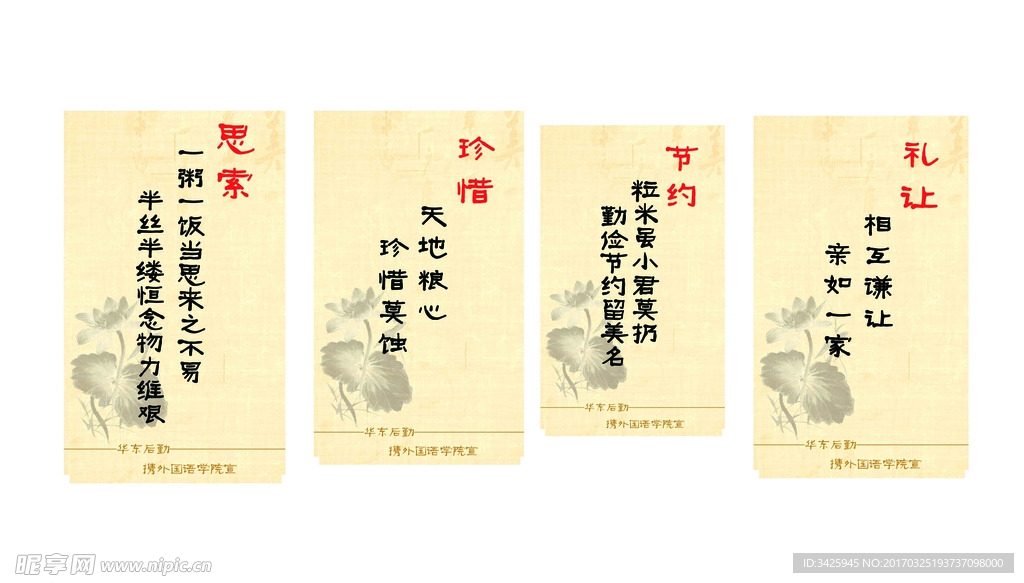 思索
一粥一饭当思来之不易
半丝半缕恒念物力维艰
华东后勤
携外国语学院宣
珍惜
天地粮心
珍惜莫蚀
华东后勤
携外国语学院宣
节约
粒米虽小君莫扔
勤俭节约留美名
华东后勤
携外国语学院宣
礼让
相互谦让
亲如一家
华东后勤
携外国语学院宣
昵享网 www.nipic.cn
ID:3425945 NO:20170325193737098000